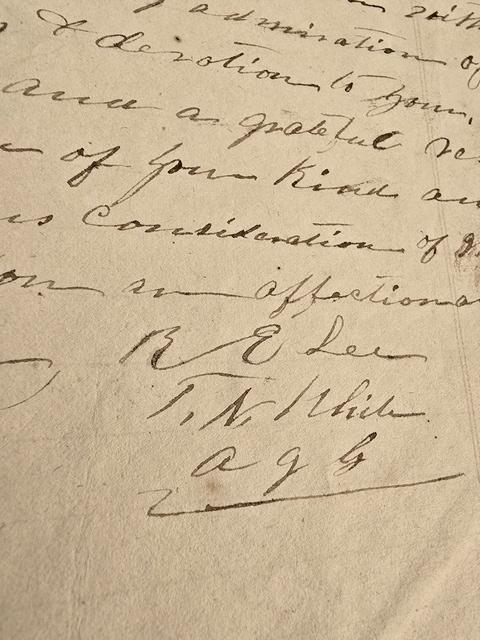 with
admiration of
& devotion to your
and a grateful re
of your kind an
us Consideration of
an affectiona
R E Lee
T. N. White
a g G